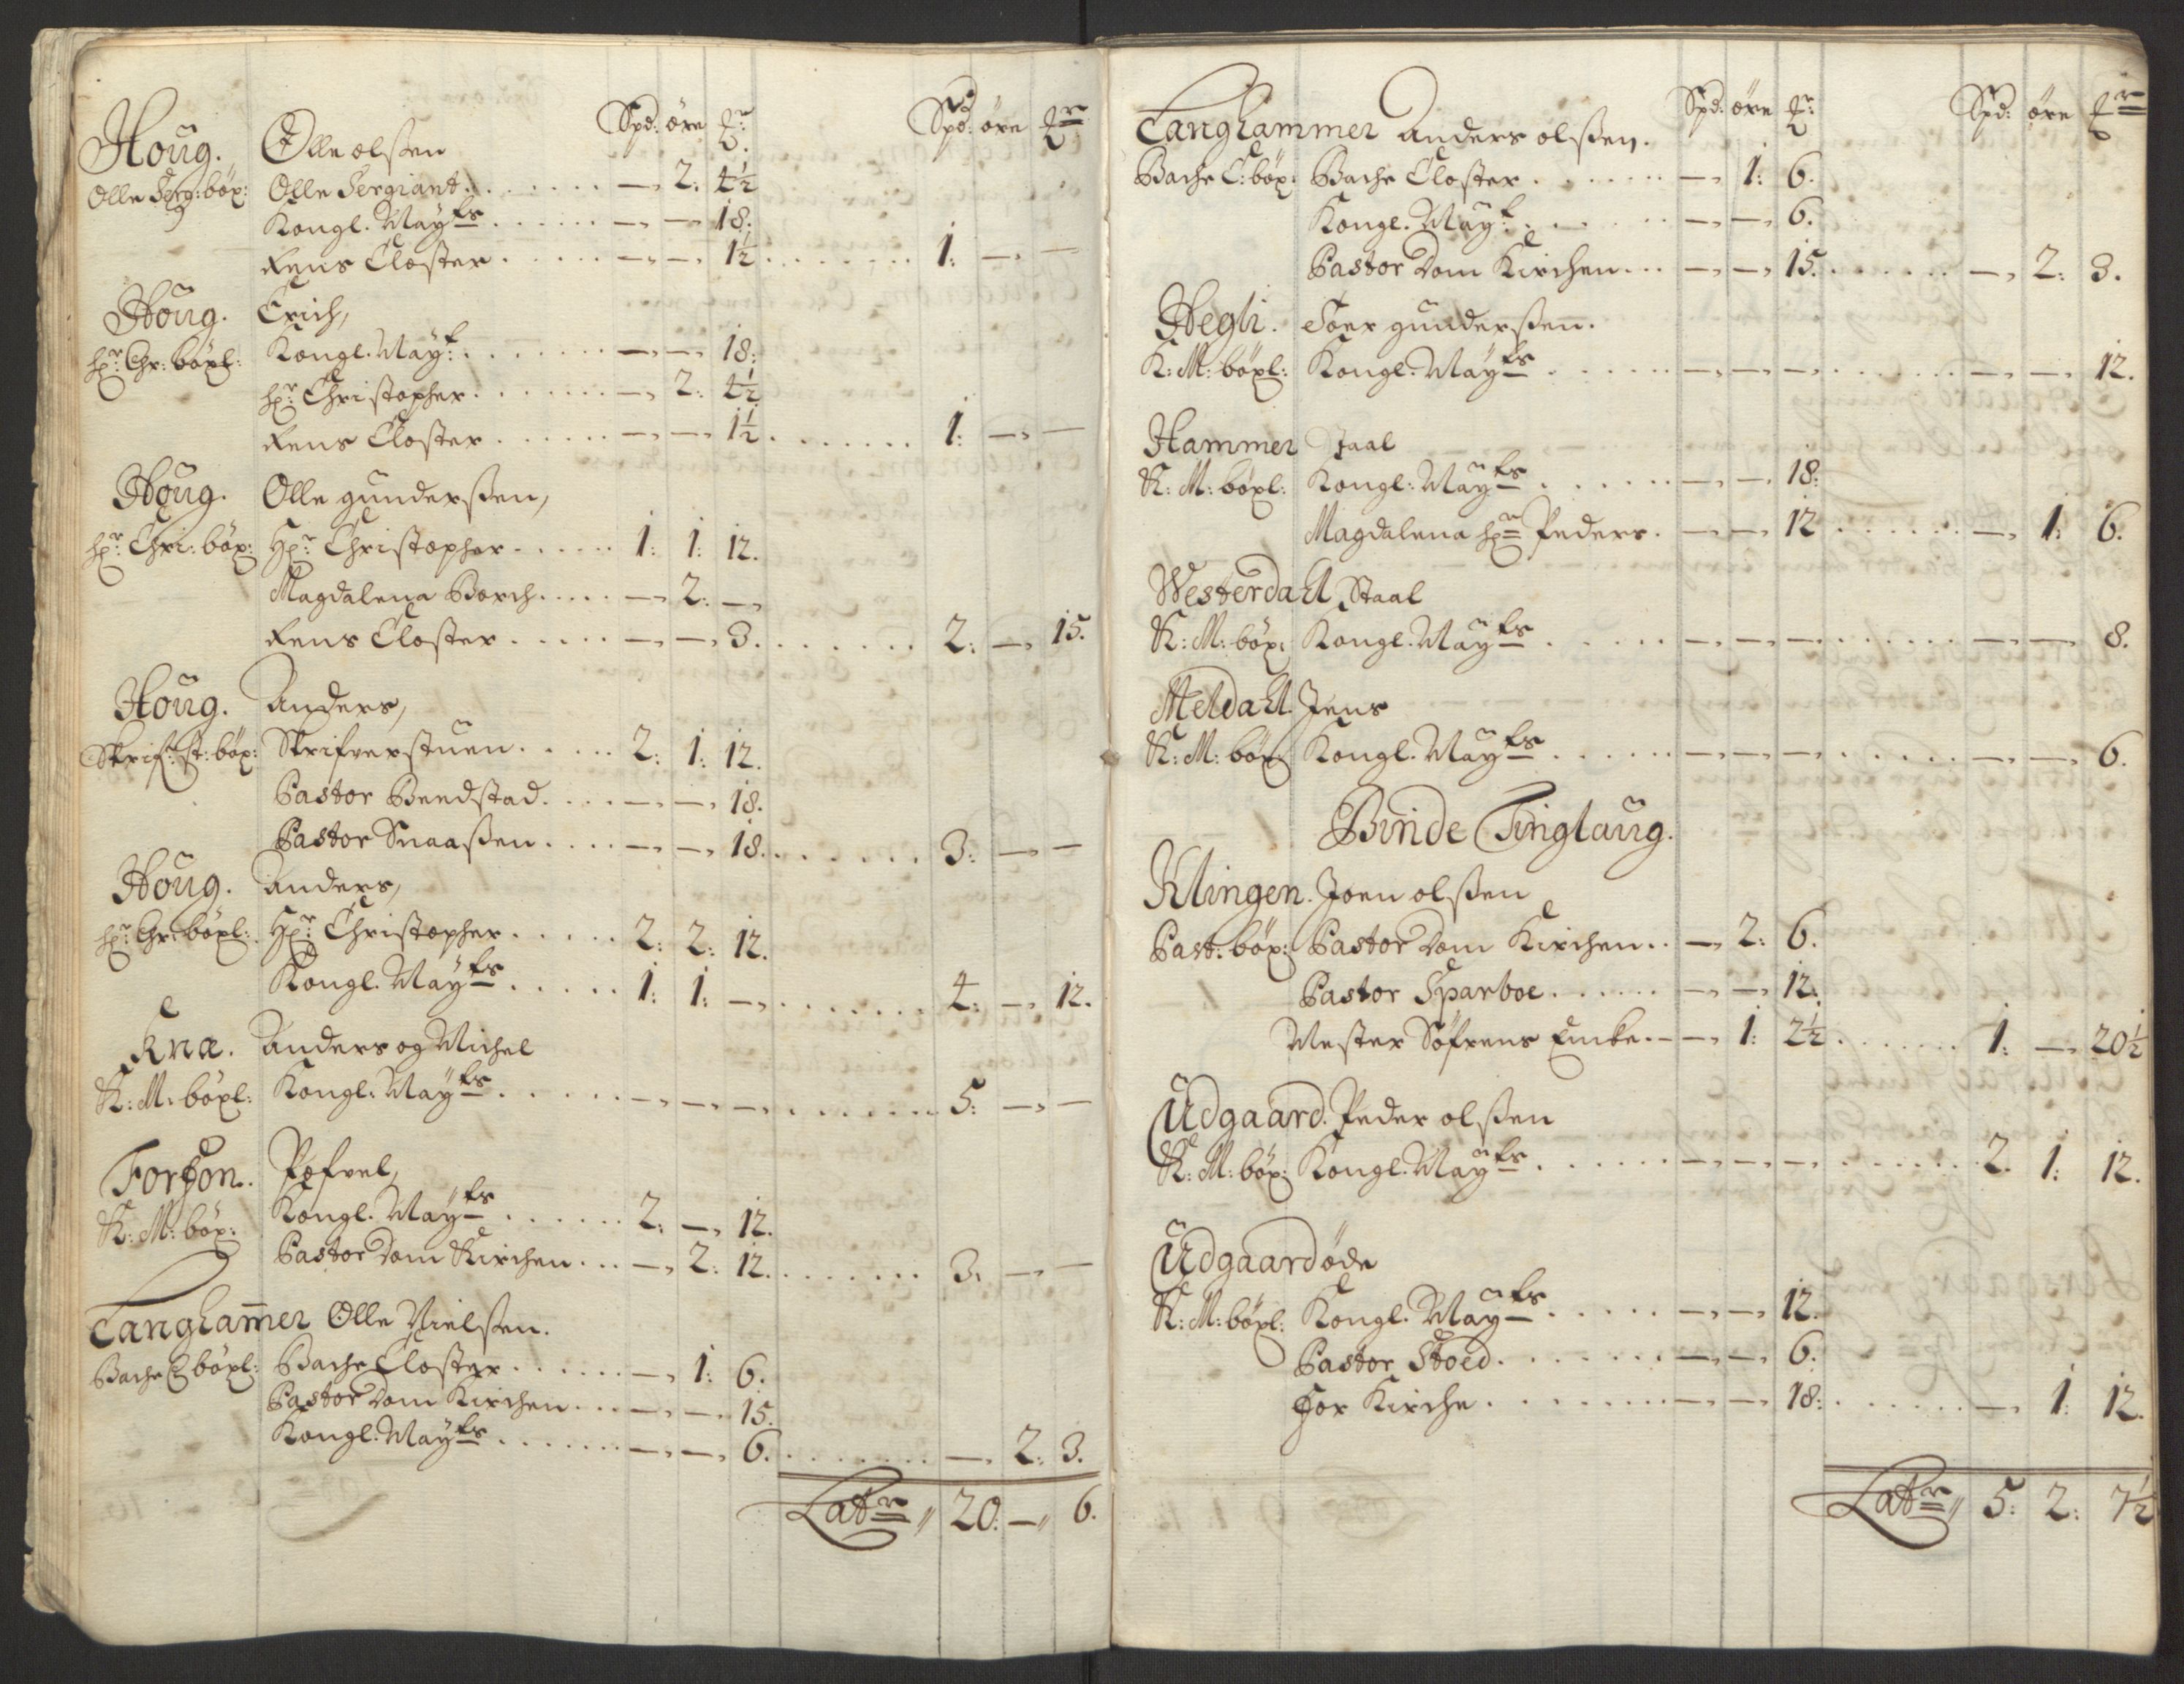 Spd: öre
Spd: öre
Houg. Olle olsßen
Olle Serg: böx: Olle Sergiant. — 2: 4½
Kongl. Mayts — — 18.
Rens Closter — — 1½ 1: — —
Houg. Erich,
hr: Chr: böxl: Kongl. Mayt: — — 18:
hr: Christopher — 2: 4½
Rens Closter — — 1½ 1: — —
Houg. Olle gunderßen,
hr: Chri: böx: Hr: Christopher 1: 1: 12.
Magdalena Borch — 2: —
Rens Closter — — 3. 2: — 15.
Houg. Anders,
Skrif: st: böx: Skrifverstuen 2: 1: 12.
Pastor Beedstad — — 18.
Pastor Snaaßen — — 18. 3: — —
Houg. Anders,
hr: Chr: böxl: Hr: Christopher 2: 2: 12.
Kongl. Mayts 1: 1: — 4: — 12.
Knæ. Anders og Michel
K: M: böxl: Kongl. Mayts — — — 5: — —
Forhon. Pofvel,
K: M: böx: Kongl. Mayts 2: — 12.
Pastor Dom Kirchen — 2: 12. 3. — —
Langhamer Olle Nielsßen.
Bache C böxl: Bache Closter — 1: 6.
Pastor Dom Kirchen — — 15.
Kongl. Mayts — — 6. — 2: 3.
Latr 20: — 6.
Spd: öre
Spd: öre
Langhammer Anders olsßen.
Bache C: böx: Bache Closter — 1: 6.
Kongl. Mayt: — — 6.
Pastor Dom Kirchen — — 15. — 2: 3.
Hegli. Toer gunderßen.
K: M: böxl: Kongl. Mayts — — — — — 12.
Hammer Staal
K: M: böxl: Kongl: Mayts — — 18:
Magdalena hr Peders. — — 12 — 1: 6.
Westerdall Staal
K: M: böx: Kongl. Mayts — — — — — 8.
Meldall. Jens
K: M: böx Kongl. Mayts — — — — — 6.
Binde Tinglaug.
Klingen. Joen olsßen
Past: böx: Pastor Dom Kirchen — 2: 6.
Pastor Sparboe — — 12.
Mester Söfrens Encke — 1: 2½ 1: — 20½
Udgaard. Peder olsßen
K: M: böx: Kongl. Mayts — — — 2. 1: 12.
Udgaard öde
K: M: böxl: Kongl. Mayts — — 12.
Pastor Stoed — — 6.
For Kirche — — 18: — 1: 12.
Latr 5: 2: 7½